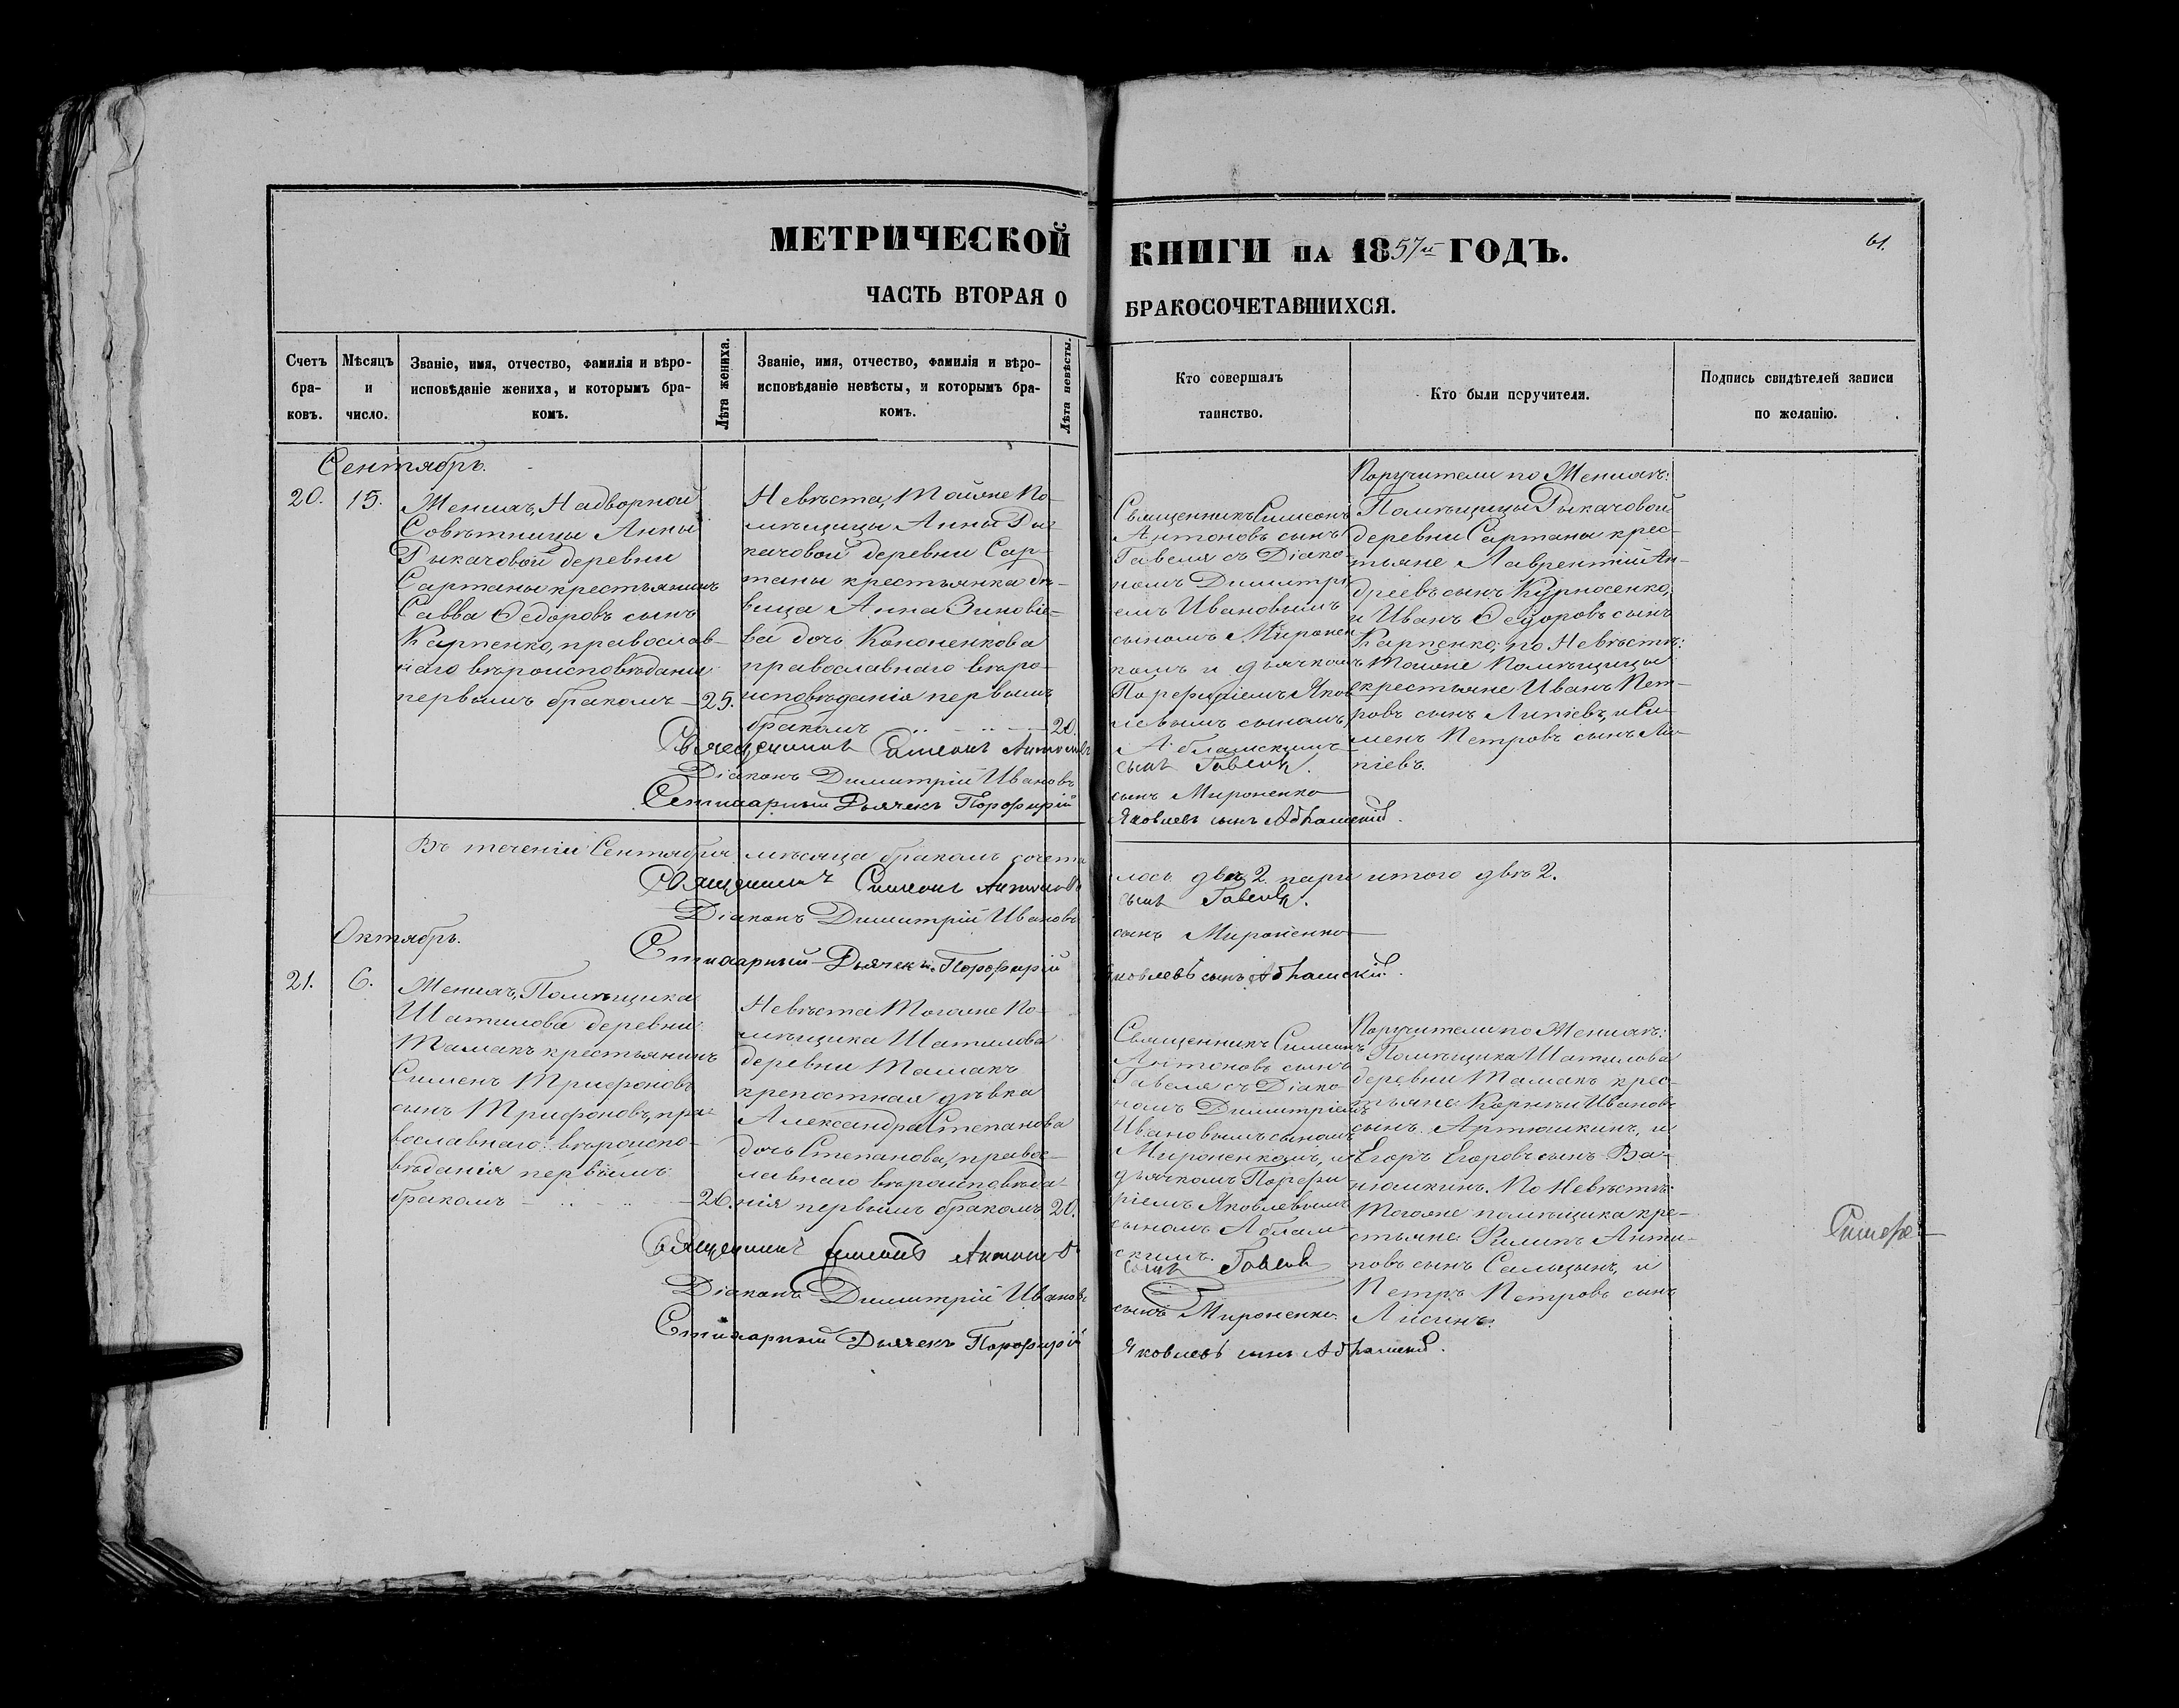 МЕТРИЧЕСКОЙ
КНИГИ НА 1857й ГОДЪ.
61.
ЧАСТЬ ВТОРАЯ О
БРАКОСОЧЕТАВШИХСЯ.
Счетъ бра-ковъ.
Мѣсяцъ и число.
Званіе, имя, отчество, фамилія и вѣро-
исповѣданіе жениха, и которымъ бра-
комъ.
Лѣта жениха.
Званіе, имя, отчество, фамилія и вѣро-
исповѣданіе невѣсты, и которымъ бра-
комъ.
Лѣта невѣсты.
Кто совершалъ
таинство.
Кто были поручители.
Подпись свидѣтелей записи
по желанію.
Сентябрь.
20. 15.
Женихъ, Надворной
Совѣтницы Анны
Рыкачовой деревни
Сартаны крестьянинъ
Савва Ѳедоровъ сынъ
Карпенко, православ-
наго вѣроисповѣданія
первымъ бракомъ 25.
Невѣста, Тойже По-
мѣщицы Анны Ры-
качовой деревни Сар-
таны крестьянка дѣ-
вица Анна Зиновіе-
ва дочь Кононенкова
православнаго вѣро-
исповѣданія первымъ
бракомъ 20.
Священникъ Симеонъ
Антоновъ сынъ
Гавеля съ Діако-
номъ Димитрі-
емъ Ивановымъ
сыномъ Миронен-
комъ и дьячкомъ
Порфиріемъ Яков-
левымъ сыномъ
Поручители по Женихѣ:
Помѣщицы Рыкачовой
деревни Сартаны крес-
тьяне Лаврентій Ан-
дріевъ сынъ Курносенко,
и Иванъ Ѳедоровъ сынъ
Карпенко; по Невѣстѣ:
Тойже Помѣщицы
крестьяне Иванъ Пет-
ровъ сынъ Липіевъ, и Си-
менъ Петровъ сынъ Ли-
піевъ.
Священникъ Симеонъ Антоновъ
сынъ Гавеля.
Діаконъ Димитрій Ивановъ
сынъ Мироненко
Стихарный Дьячекъ Порфирій
Яковлевъ сынъ
Въ теченіи Сентября мѣсяца бракомъ сочета
лось двѣ 2 пары итого двѣ 2.
Священникъ Симеонъ Антоновъ
сынъ Гавеля.
Діаконъ Димитрій Ивановъ
сынъ Мироненко
Стихарный Дьячекъ Порфирій
Яковлевъ сынъ
Октябрь.
21. 6.
Женихъ, Помѣщика
Шатилова деревни
Тамакъ крестьянинъ
Сименъ Трифоновъ
сынъ Трифоновъ, пра-
вославнаго вѣроиспо-
вѣданія первымъ
бракомъ 26.
Невѣста Тогоже По-
мѣщика Шатилова
деревни Тамакъ
крепостная дѣвка
Александра Степанова
дочь Степанова, правос-
лавнаго вѣроисповѣда-
нія первымъ бракомъ 20.
Священникъ Симеонъ
Антоновъ сынъ
Гавеля съ Діако-
номъ Димитріемъ
Ивановымъ сыномъ
Мироненкомъ, и
дьячкомъ Порфи-
ріемъ Яковлевымъ
сыномъ
Поручители по Женихѣ:
Помѣщика Шатилова
деревни Тамакъ крес-
тьяне Корнѣй Ивановъ
сынъ Артюшкинъ, и
Егоръ Егоровъ сынъ Ва-
нюшкинъ. По Невѣстѣ:
Тогоже помѣщика кре-
стьяне Филипъ Анти-
повъ сынъ Сальцынъ, и
Петръ Петровъ сынъ
Лисинъ.
Священникъ Симеонъ Антоновъ
сынъ Гавеля
Діаконъ Димитрій Ивановъ
сынъ Мироненко.
Стихарный Дьячекъ Порфирій
Яковлевъ сынъ